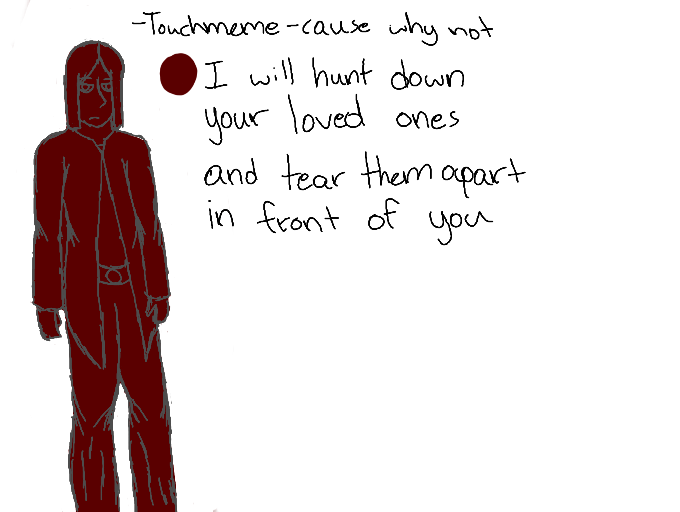 -Touchmeme-cause why not
I will hunt down
your loved ones
and tear them apart
in front of you